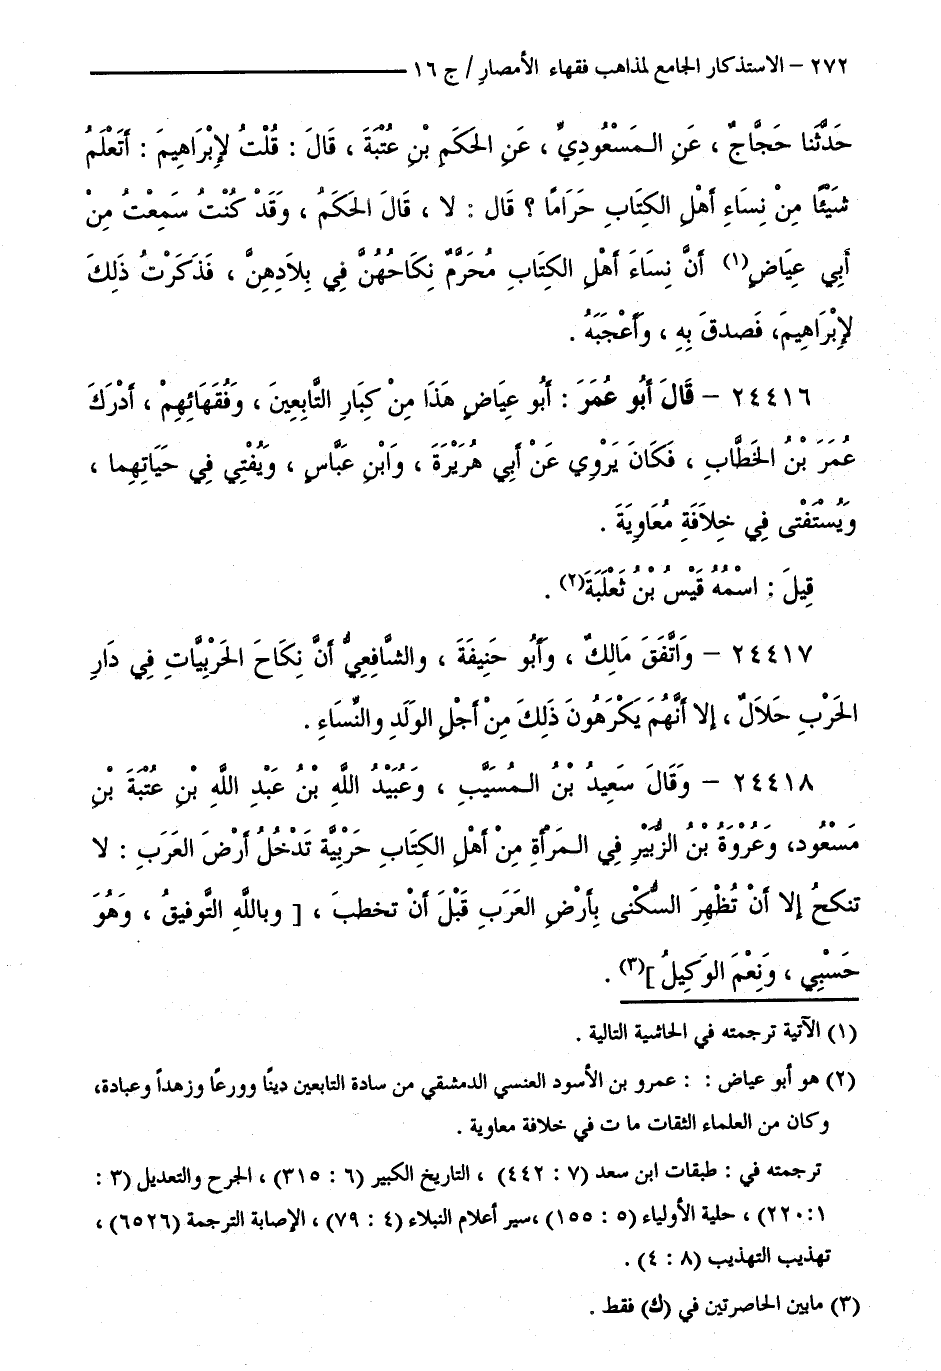 ٢٧٢ – الاستذكار الجامع لمذاهب فقهاء الأمصار / ج ١٦
حَدَّثَنا حَجَّاجٌ ، عَنِ المَسْعُودِيِّ ، عَنِ الحَكَمِ بْنِ عُتْبَةَ ، قَالَ : قُلْتُ لإِبْرَاهِيمَ : أَتَعْلَمُ
شَيْئًا مِنْ نِسَاءِ أَهْلِ الكِتَابِ حَرَامًا ؟ قَال : لا ، قَالَ الحَكَمُ ، وَقَدْ كُنْتُ سَمِعْتُ مِنْ
أبِي عِيَاضٍ(١) أَنَّ نِسَاءَ أَهْلِ الكِتَابِ مُحَرَّمٌ نِكَاحُهُنَّ فِي بِلاَدِهِنَّ ، فَذَكَرْتُ ذَلِكَ
لإِبْرَاهِيمَ، فَصدقَ بِهِ ، وَأَعْجَبَهُ .
٢٤٤١٦ – قَالَ أَبُو عُمَرَ : أَبُو عِيَاضٍ هَذَا مِنْ كِبَارِ التَّابِعِينَ ، وَفُقَهَائِهِمْ ، أَدْرَكَ
عُمَرَ بْنُ الخَطَّابِ ، فَكَانَ يَرْوِي عَنْ أَبِي هُرَيْرَةَ ، وَابْنِ عَبَّاسٍ ، وَيُفْتِي فِي حَيَاتِهِما ،
وَيُسْتَفْتَى فِي خِلاَفَةِ مُعَاوِيَةَ .
قِيلَ : اسْمُهُ قَيْسُ بْنُ ثَعْلَبَةَ(٢) .
٢٤٤١٧ – وَاتَّفَقَ مَالِكٌ ، وَأَبُو حَنِيفَةَ ، والشَّافِعِيُّ أَنَّ نِكَاحَ الحَرْبِيَّاتِ فِي دَارِ
الحَرْبِ حَلاَلٌ ، إلا أَنَّهُمَ يَكْرَهُونَ ذَلِكَ مِنْ أَجْلِ الوَلَدِ والنِّسَاءِ .
٢٤٤١٨ – وَقَالَ سَعِيدُ بْنُ المُسَيَّبِ ، وَعُبَيْدُ اللَّهِ بْنُ عَبْدِ اللَّهِ بْنِ عُتْبَةَ بْنِ
مَسْعُود، وَعُرْوَةُ بْنُ الزُّبَيْرِ فِي المَرْأَةِ مِنْ أَهْلِ الكِتَابِ حَرْبِيَّة تَدْخُلُ أرضَ العَرَبِ : لا
تنكحُ إلا أَنْ تُظْهِرَ السُّكْنى بِأَرْضِ العَرَبِ قَبْلَ أَنْ تخطبَ ، [ وباللَّهِ التَّوفيقُ ، وَهُوَ
حَسْبِي ، وَنِعْمَ الوَكِيلُ ](٣) .
(١) الآتية ترجمته في الحاشية التالية .
(٢) هو أبو عياض : : عمرو بن الأسود العنسي الدمشقي من سادة التابعين دينًا وورعًا وزهداً وعبادة،
وكان من العلماء الثقات ما ت في خلافة معاوية .
ترجمته في : طبقات ابن سعد (٧ : ٤٤٢) ، التاريخ الكبير (٦ : ٣١٥) ، الجرح والتعديل (٣ :
٢٢٠:١) ، حلية الأولياء (٥ : ١٥٥) ،سير أعلام النبلاء (٤ : ٧٩) ، الإصابة الترجمة (٦٥٢٦) ،
تهذيب التهذيب (٨ : ٤) .
(٣) مابين الحاصرتين في (ك) فقط .